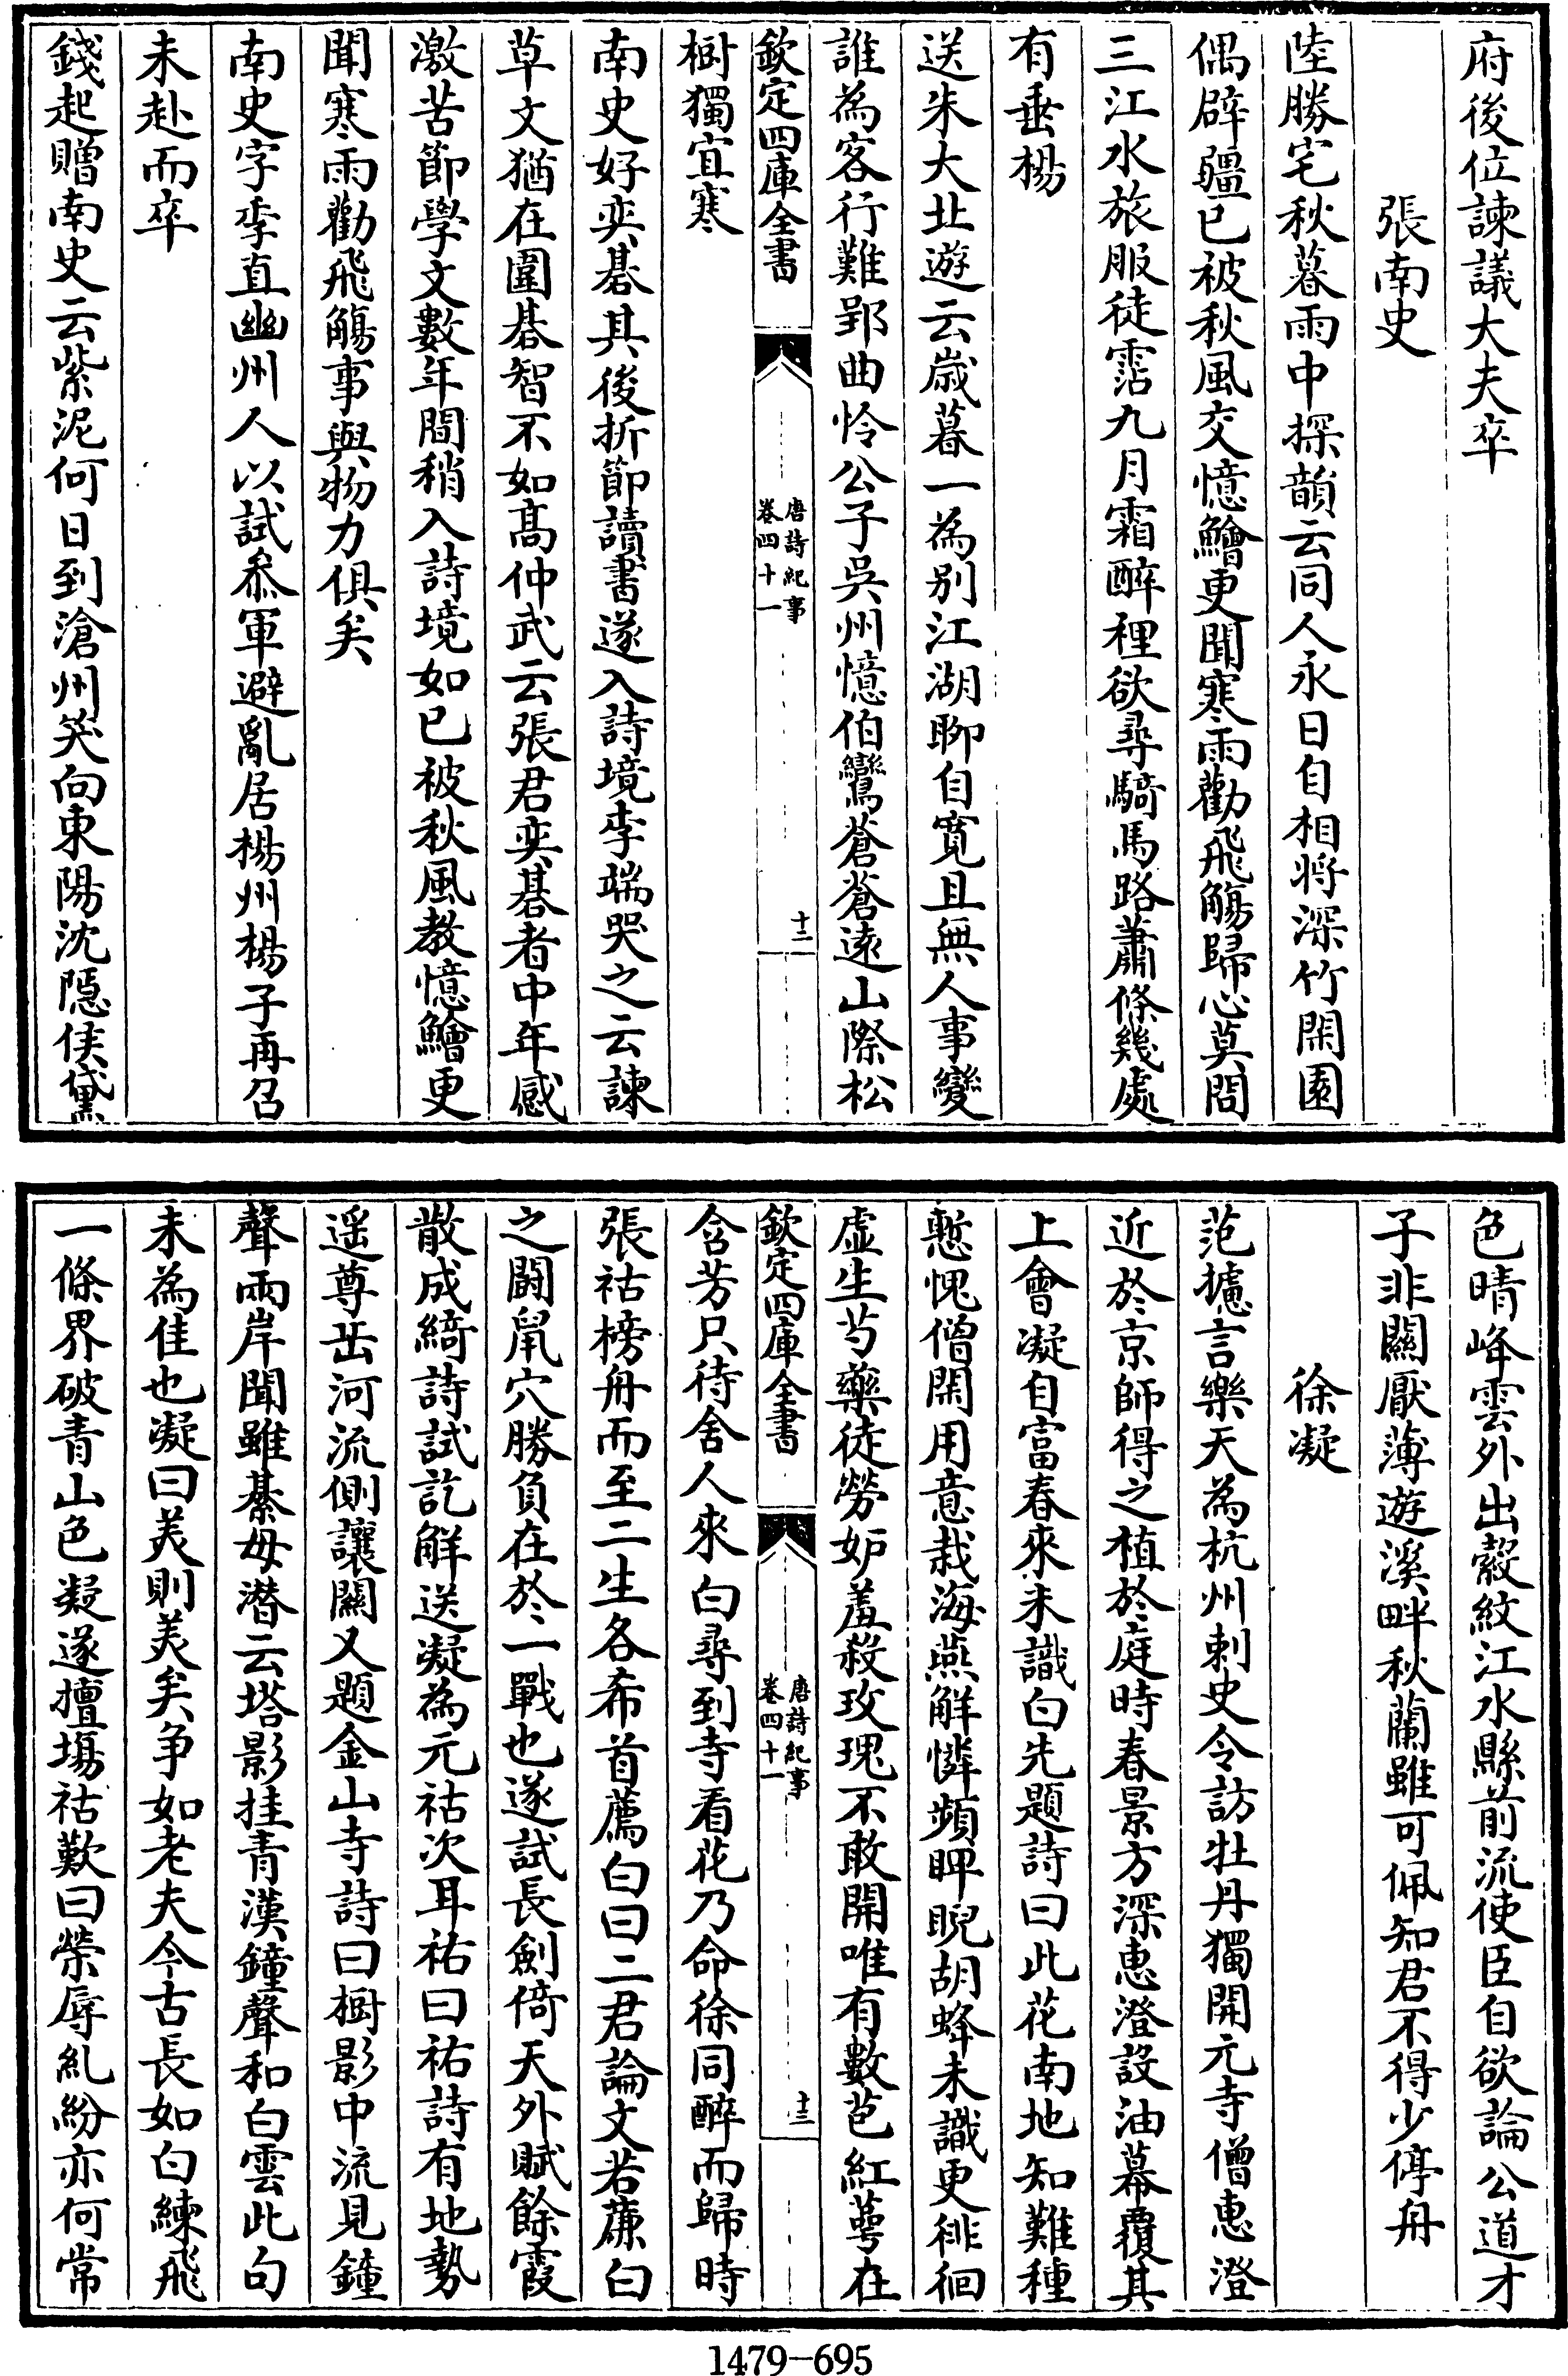 府後位諫議大夫卒
張南史
陸勝宅秋暮雨中探韻云同人永日自相将深竹閑園
偶辟疆已被秋風交憶鱠更聞寒雨勸飛觴歸心莫問
三江水旅服徒霑九月霜醉裡欲尋騎馬路蕭條幾處
有垂楊
送朱大北遊云歳暮一為别江湖聊自寛且無人事變
誰為客行難郢曲怜公子吳州憶伯鸞蒼蒼遠山際松
欽定四庫全書
唐詩紀事
卷四十一
十二
樹獨宜寒
南史好奕碁其後折節讀書遂入詩境李端哭之云諫
草文猶在圍碁智不如髙仲武云張君奕碁者中年感
激苦節學文數年間稍入詩境如已被秋風教憶鱠更
聞寒雨勸飛觴事與物力俱矣
南史字季直幽州人以試叅軍避亂居楊州楊子再召
未赴而卒
錢起贈南史云紫泥何日到滄州笑向東陽沈隠侯黛
色晴峰雲外出縠紋江水縣前流使臣自欲論公道才
子非關厭薄遊溪畔秋蘭雖可佩知君不得少停舟
徐凝
范攄言樂天為杭州刺史令訪牡丹獨開元寺僧惠澄
近於京師得之植於庭時春景方深惠澄設油幕覆其
上會凝自富春來未識白先題詩曰此花南地知難種
慙愧僧閑用意栽海燕解憐頻睥睨胡蜂未識更徘徊
虚生芍藥徒勞妒羞殺玫瑰不敢開唯有數苞紅萼在
欽定四庫全書
唐詩紀事
卷四十一
十三
含芳只待舍人來白尋到寺看花乃命徐同醉而歸時
張祜榜舟而至二生各希首薦白曰二君論文若㢘白
之鬭鼠穴勝負在於一戰也遂試長劍倚天外賦餘霞
散成綺詩試訖解送凝為元祜次耳祐曰祐詩有地勢
遥尊岳河流側讓關又題金山寺詩曰樹影中流見鐘
聲兩岸聞雖綦母潛云塔影挂青漢鐘聲和白雲此句
未為佳也凝曰美則美矣争如老夫今古長如白練飛
一條界破青山色凝遂擅場祜歎曰榮辱糺紛亦何常
1479-695